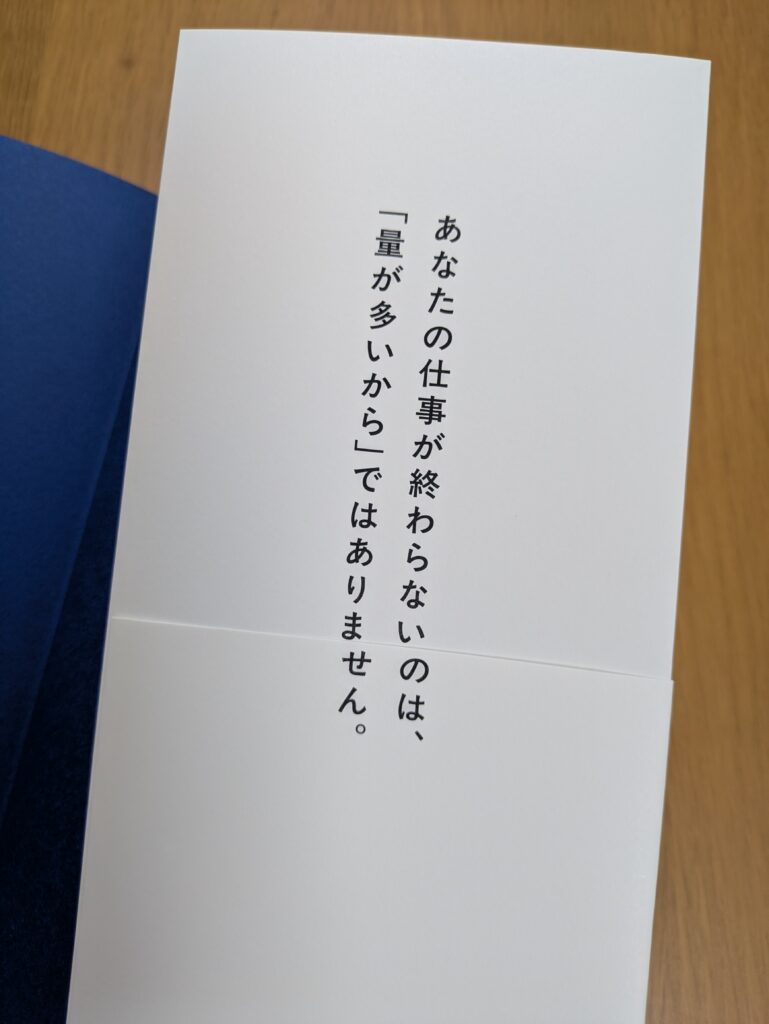 あなたの仕事が終わらないのは、
「量が多いから」ではありません。